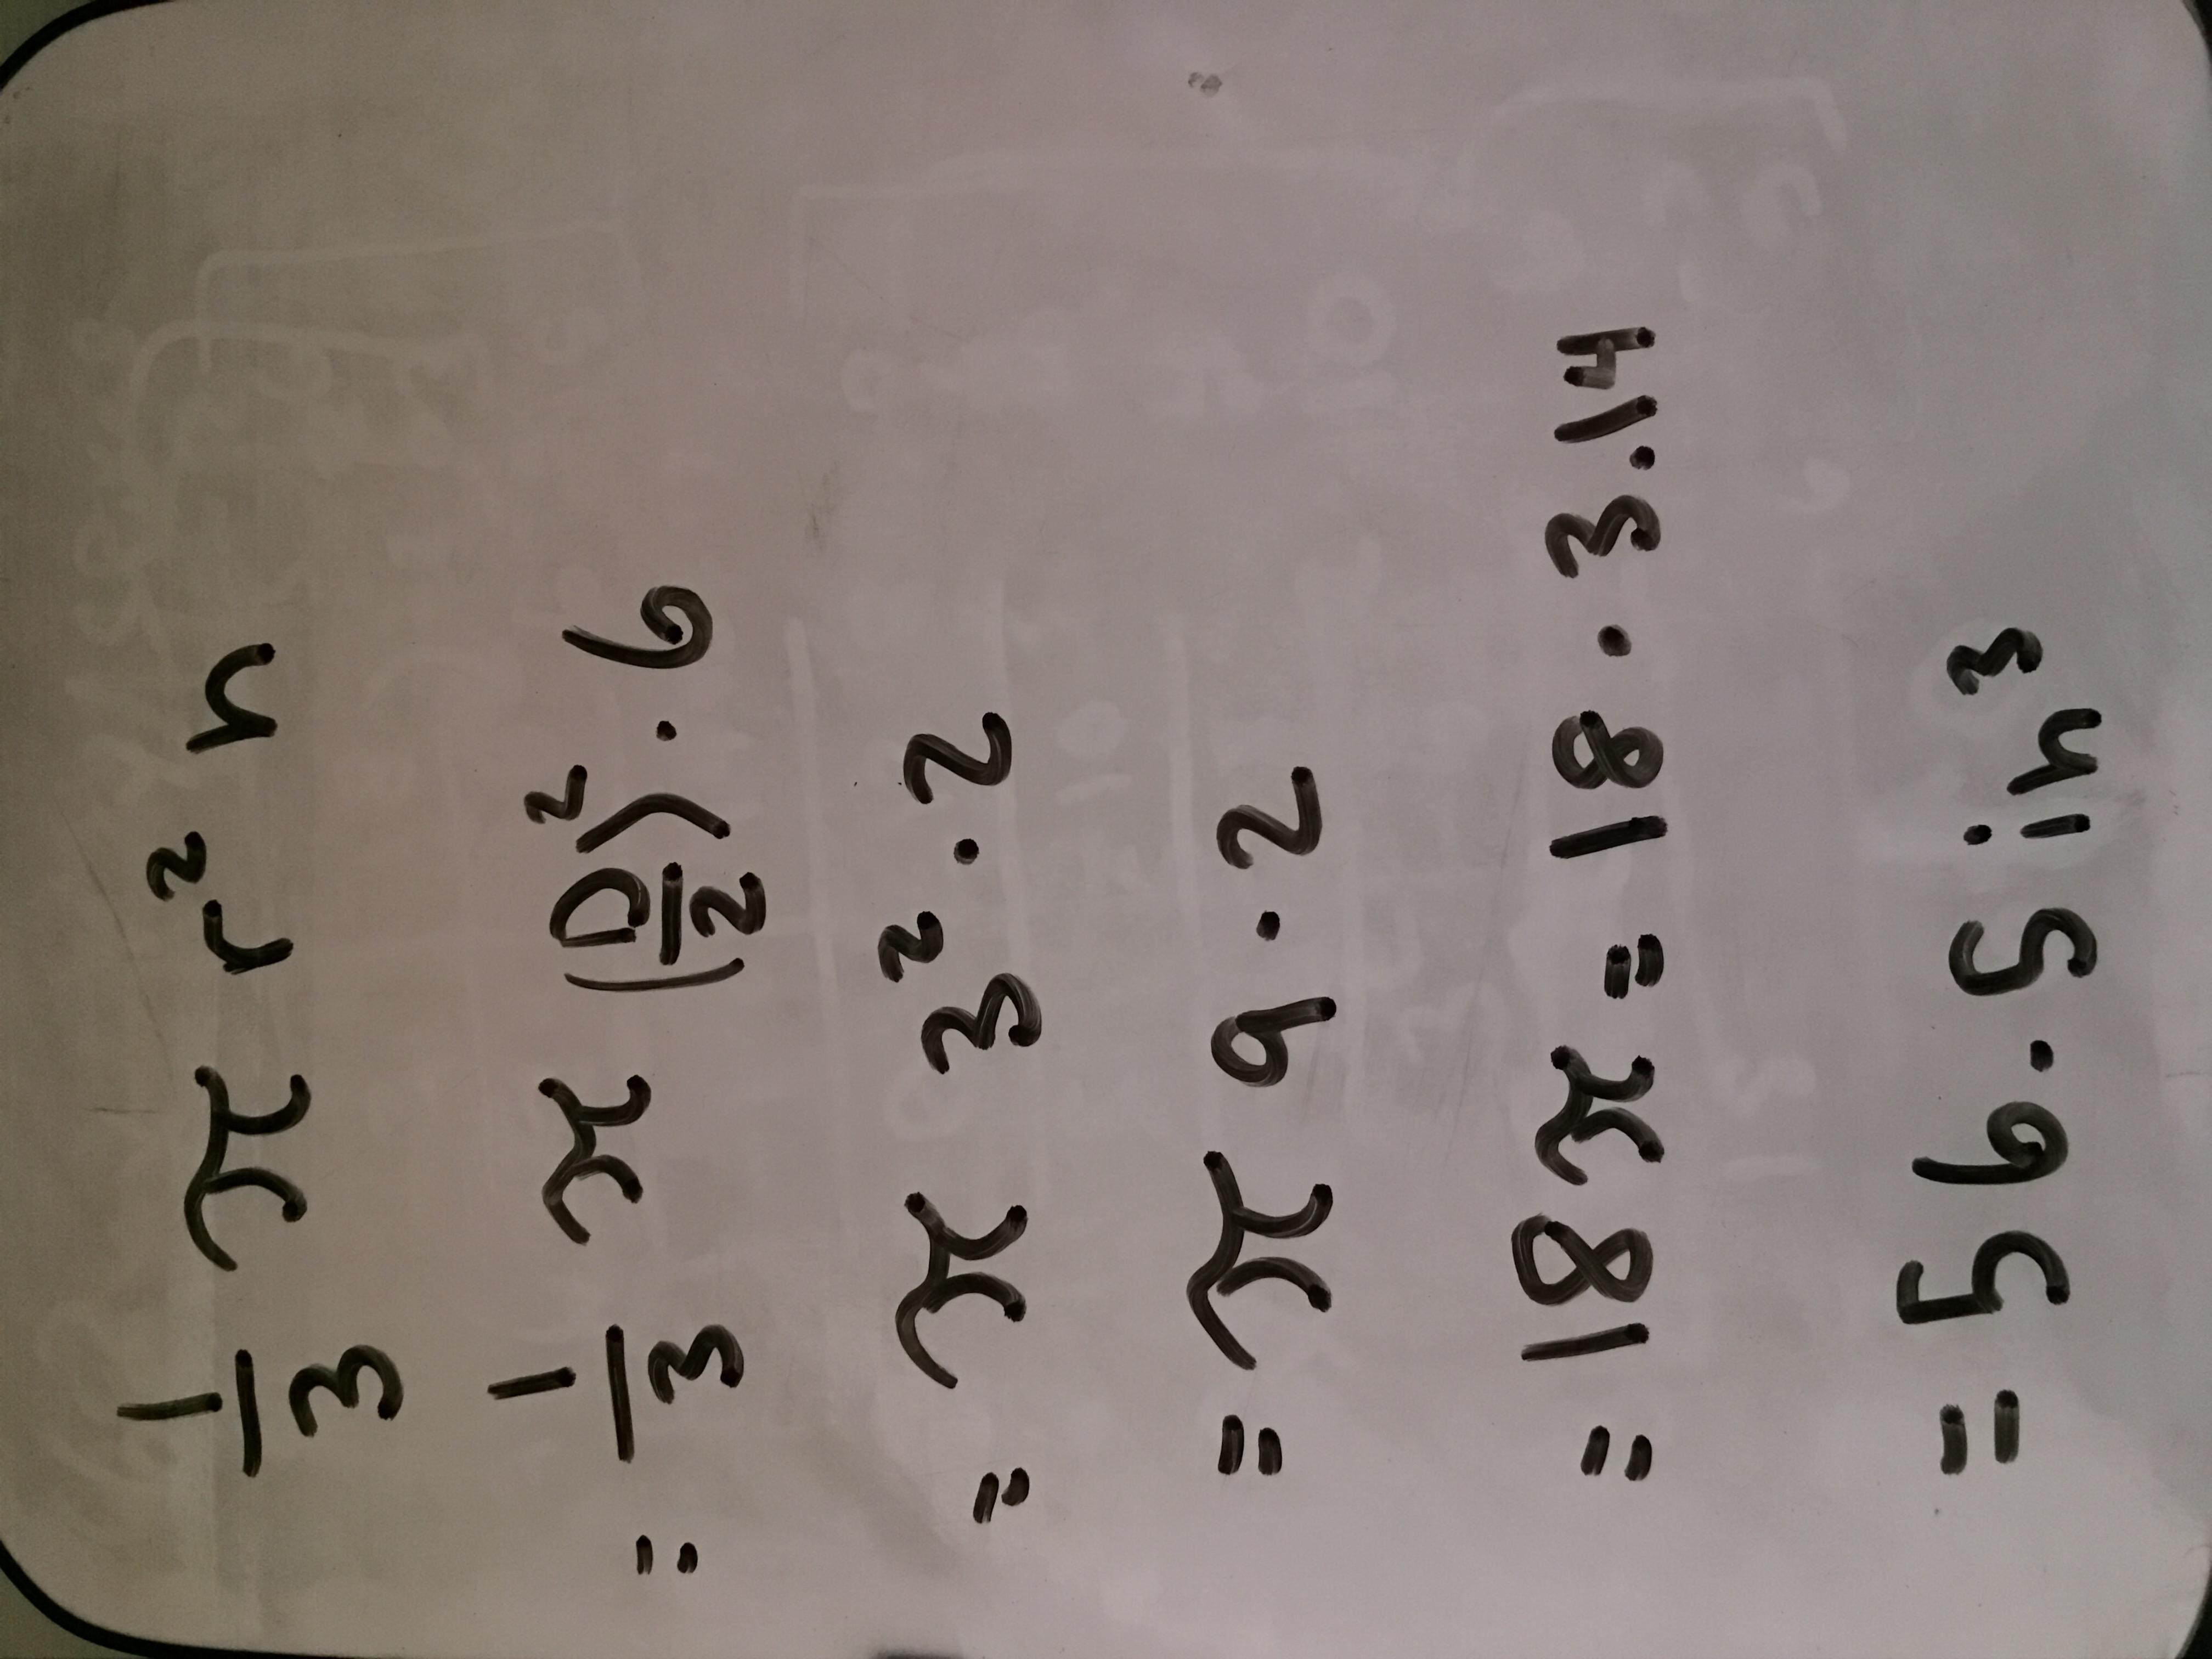 1/3 π r² h
= 1/3 π (D/2)² · 6
= π 3² · 2
= π 9 · 2
= 18π = 18 · 3.14
= 56.5 in³